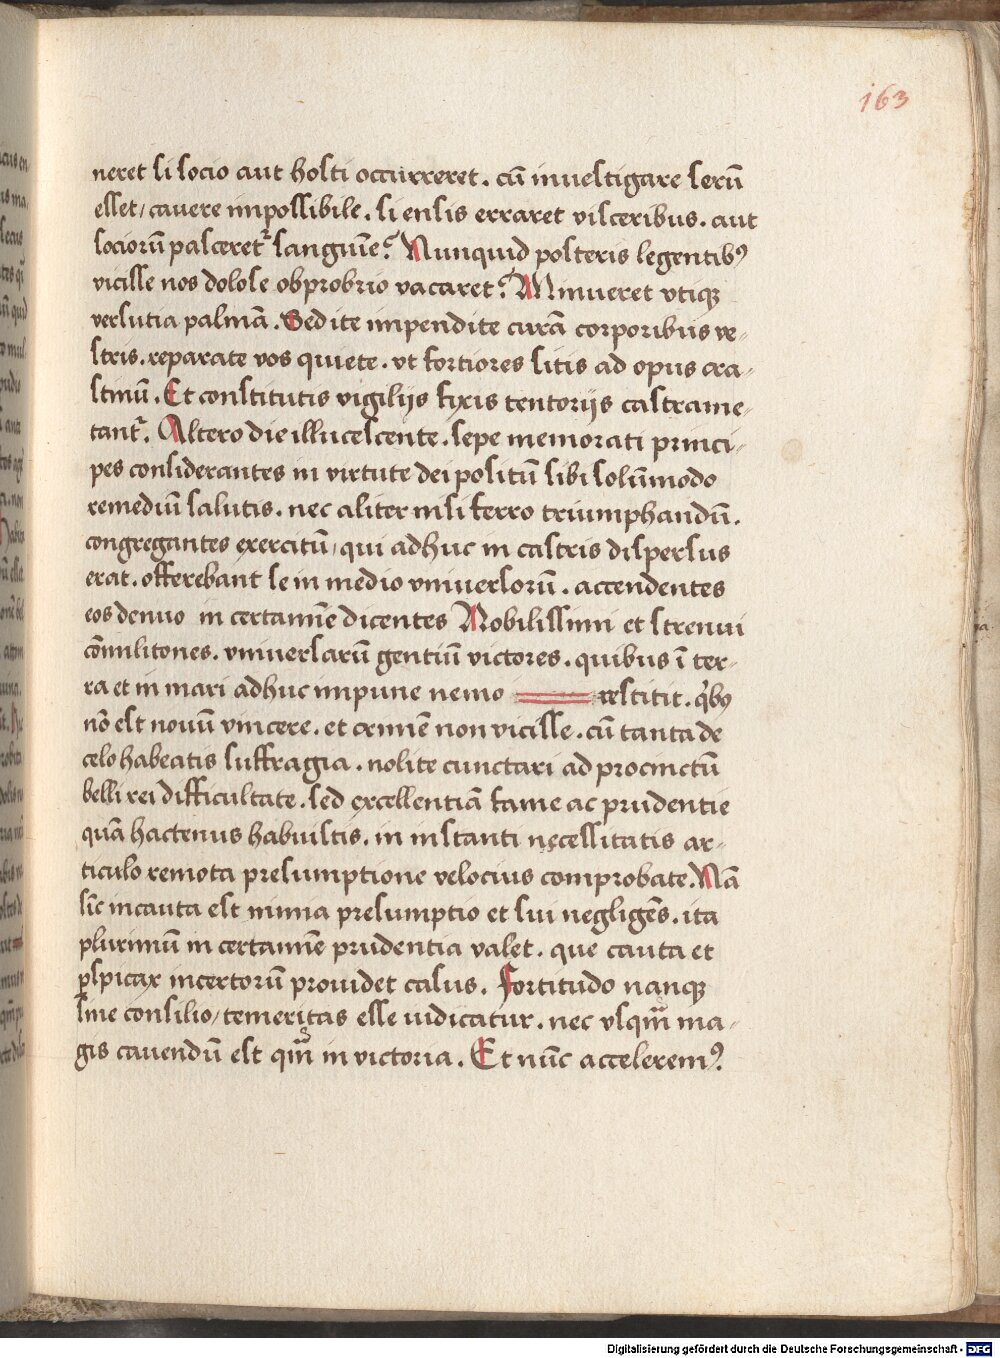 163
neret si socio aut hosti occurreret. cū inuestigare ferū
esset, cauere impossibile. si ensis erraret visceribus. aut
sociorū pasceret᷑ sanguīe? Nunquid posteris legentibꝰ
vicisse nos dolose obprobrio vacaret? Minueret vtiqꝫ
versutia palmā. Sed ite impendite curā corporibus ve-
stris. reparate vos quiete. vt fortiores sitis ad opus cra-
stinū. Et constitutis vigilijs fixis tentorijs castrame-
tant᷑. Altero die illucescente. sepe memorati princi-
pes considerantes in virtute dei positū sibi solūmodo
remediū salutis. nec aliter nisi ferro triumphandū.
congregantes exercitū, qui adhuc in castris dispersus
erat. offerebant se in medio vniuersorū. accendentes
eos denuo in certamīe dicentes Nobilissimi et strenui
cōmilitones. vniuersarū gentiū victores. quibus ī ter-
ra et in mari adhuc impune nemo restitit. qͥbꝰ
nō est nouū vincere. et crimē non vicisse. cū tanta de
celo habeatis suffragia. nolite cunctari ad procinctū
belli rei difficultate. sed excellentiā fame ac prudentie
quā hactenus habuistis. in instanti nęcessitatis ar-
ticulo remota presumptione velocius comprobate. Nā
sic̄ incauta est nimia presumptio et sui negligēs. ita
plurimū in certamīe prudentia valet. que cauta et
ꝑspicax incertorū prouidet casus. Fortitudo nanqꝫ
sine consilio, temeritas esse iudicatur. nec vsqm̄ ma-
gis cauendū est qm̄ in victoria. Et nūc acceleremꝰ.
Digitalisierung gefördert durch die Deutsche Forschungsgemeinschaft - DFG